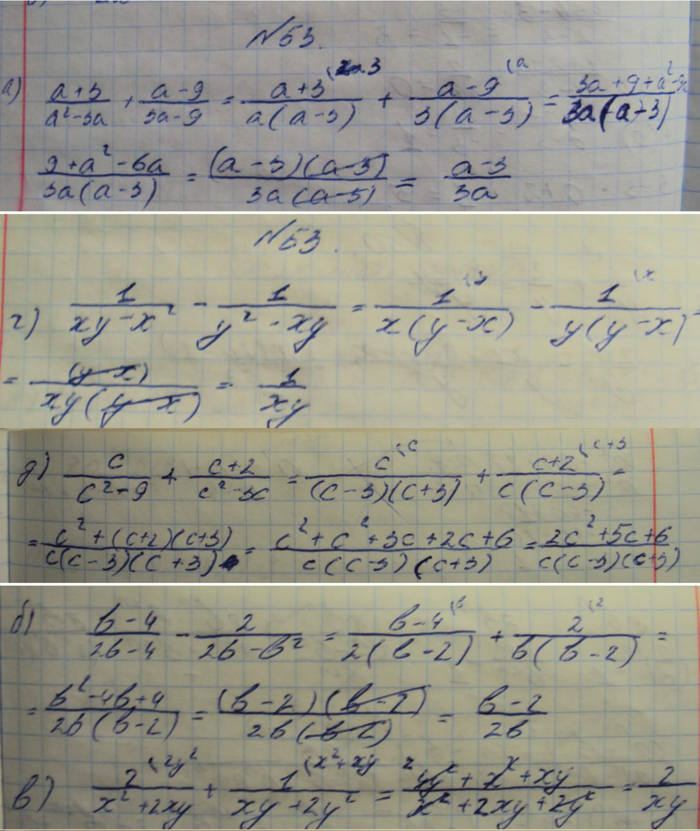 №53.
а) (a+3)/(a²-3a) + (a-9)/(3a-9) = (a+3)/(a(a-3)) + (a-9)/(3(a-3)) = (3a+9+a²-9a)/(3a(a-3))
(9+a²-6a)/(3a(a-3)) = ((a-3)(a-3))/(3a(a-3)) = (a-3)/(3a)
№53.
г) 1/(xy-x²) - 1/(y²-xy) = 1/(x(y-x)) - 1/(y(y-x)) =
= (y-x)/(xy(y-x)) = 1/(xy)
д) c/(c²-9) + (c+2)/(c²-3c) = c/((c-3)(c+3)) + (c+2)/(c(c-3)) =
= (c²+(c+2)(c+3))/(c(c-3)(c+3)) = (c²+c²+3c+2c+6)/(c(c-3)(c+3)) = (2c²+5c+6)/(c(c-3)(c+3))
б) (b-4)/(2b-4) - 2/(2b-b²) = (b-4)/(2(b-2)) + 2/(b(b-2)) =
= (b²-4b+4)/(2b(b-2)) = ((b-2)(b-2))/(2b(b-2)) = (b-2)/(2b)
в) 2/(x²+2xy) + 1/(xy+2y²) = = 2/(xy)